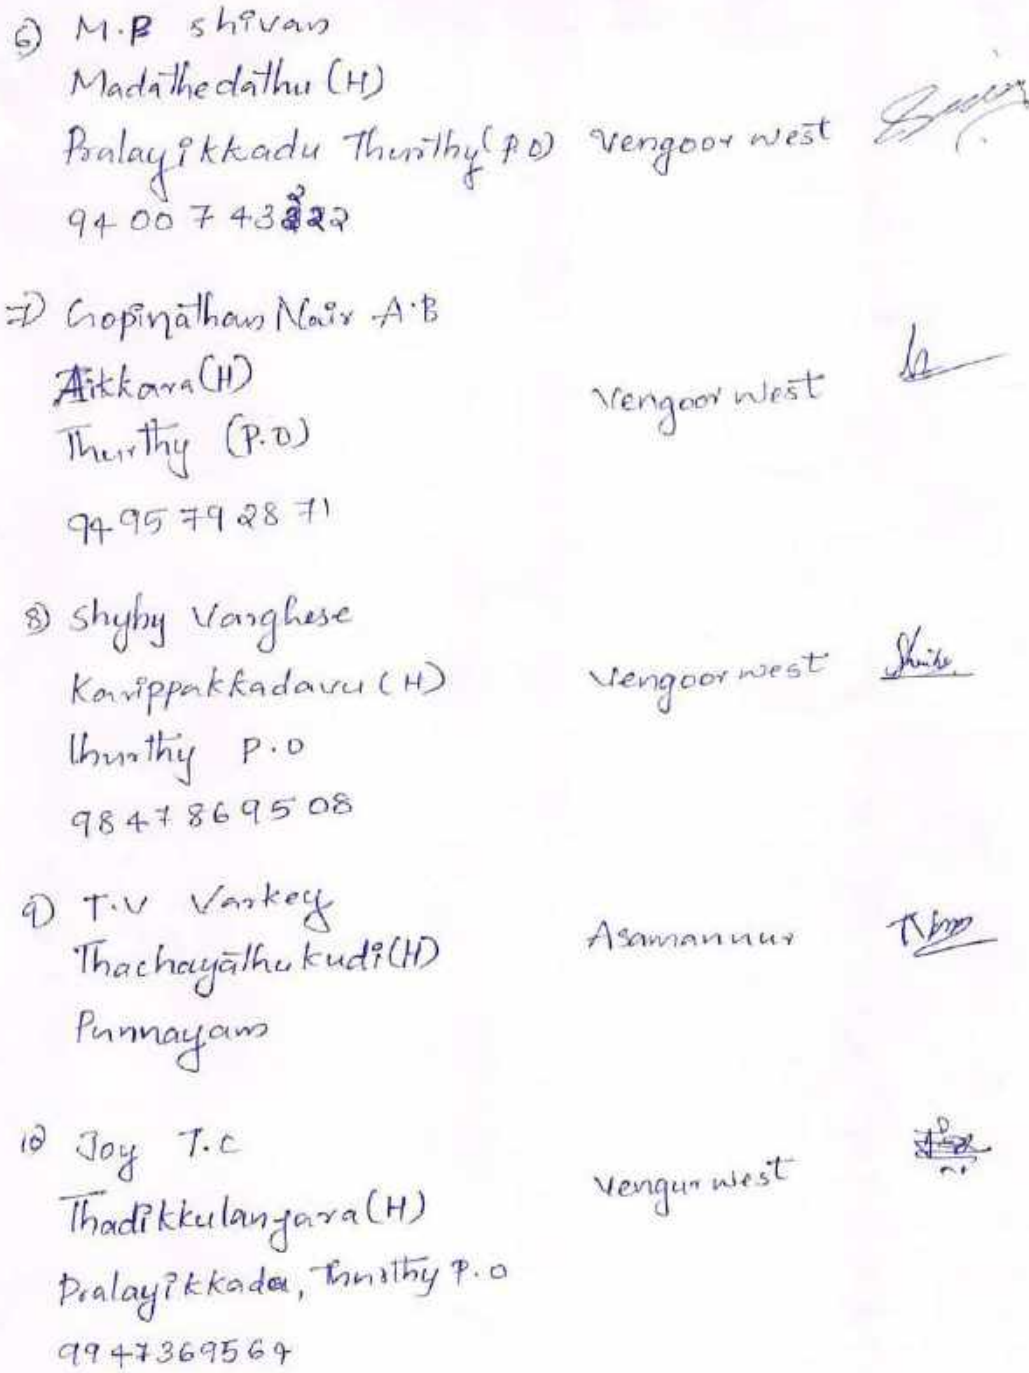 6) M.B Shivan
Madathedathu (H)
Pralayikkadu Thuruthy (P.O) Vengoor west
9400743222
7) Gopinathan Nair A.B
Aikkara (H) Vengoor west
Thurthy (P.O)
9495792871
8) Shyby Varghese
Karippakkadavu (H) Vengoor west
Thurthy P.O
9847869508
9) T.V Varkey Asamannur
Thachayathukudi (H)
Punnayam
10) Joy T.C
Thadikkulangara (H) Vengur west
Pralayikkada, Thurthy P.O
9947369564